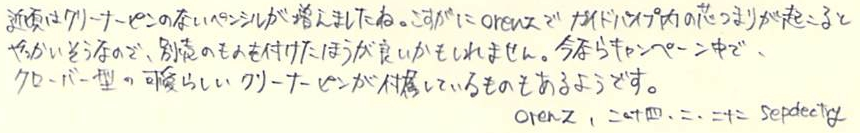 近頃はクリーナーピンのないペンシルが増えましたね。さすがにorenzでガイドパイプ内の芯つまりが起こると
やっかいそうなので、別売のものも付けたほうが良いかもしれません。今ならキャンペーン中で、
クローバー型の可愛らしいクリーナーピンが付属しているものもあるようです。
orenz, 二〇十四.二.二十二